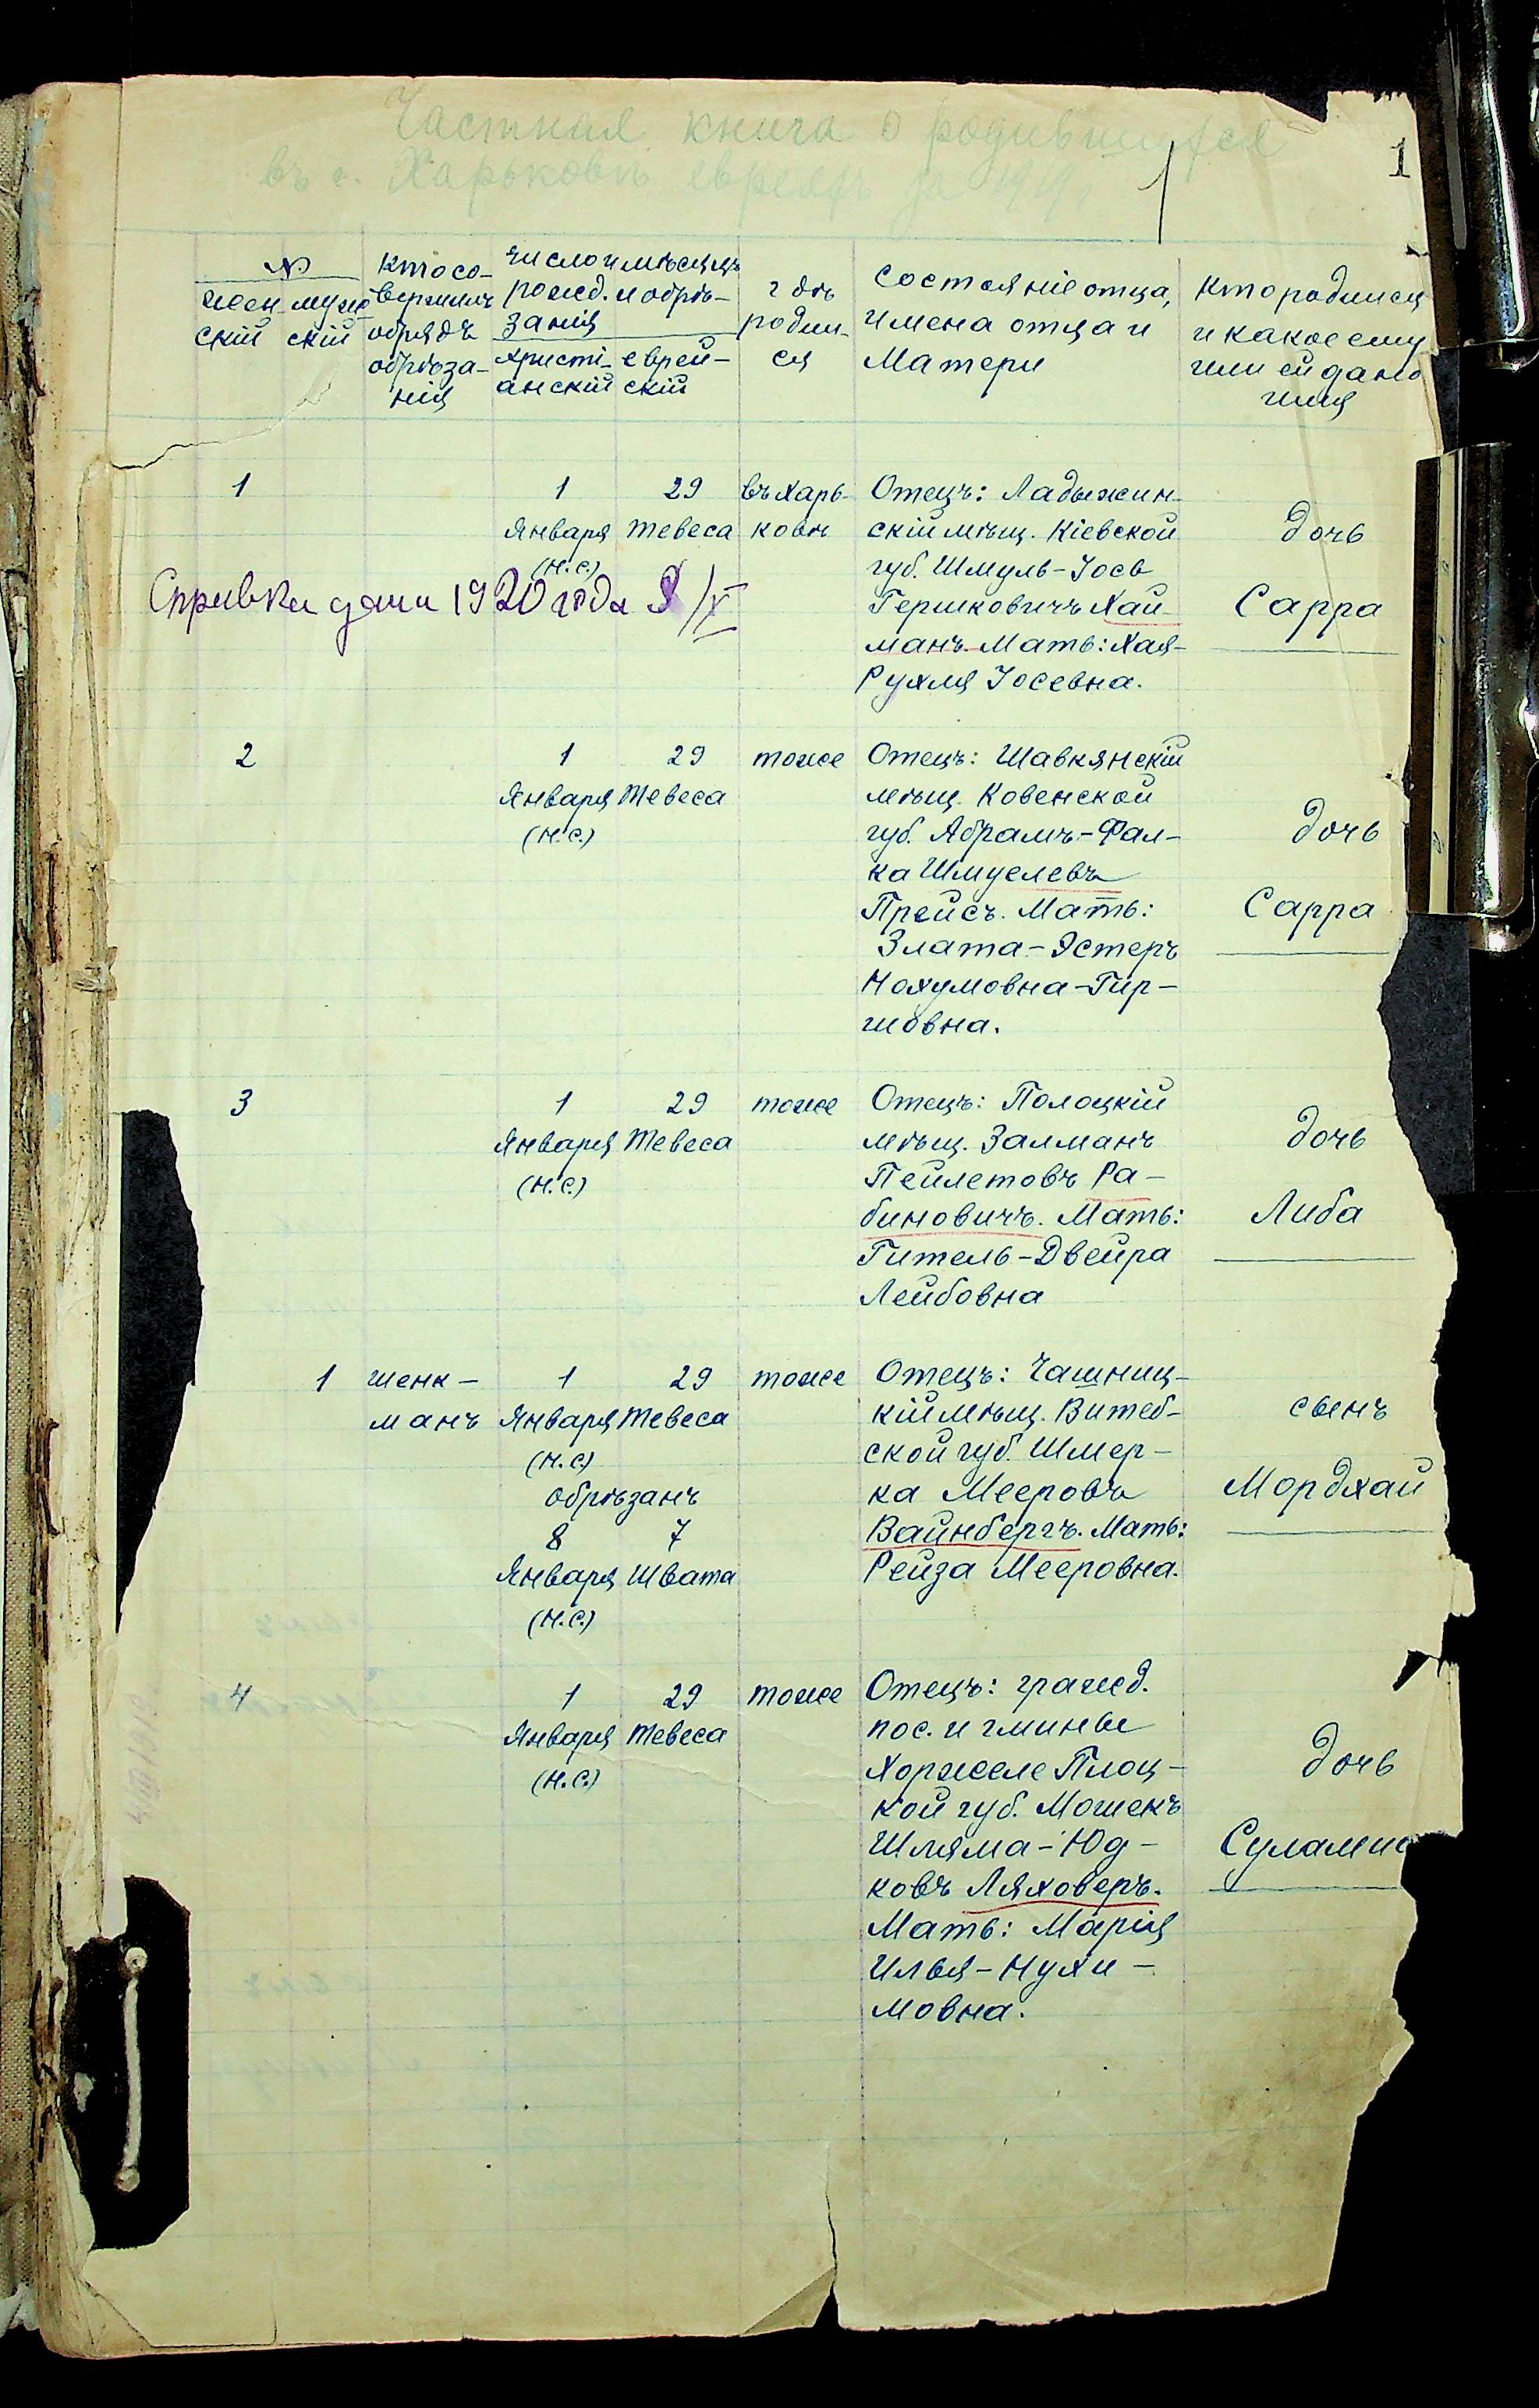 Частная книга о родившихся
въ г. Харьковѣ евреяхъ за 1919 г.
1
№
женскій
мужскій
Кто со-
вершилъ
обрядъ
обрѣза-
нія
Число и мѣсяцъ
рожд. и обрѣ-
занія
христі-
анскій
еврей-
скій
гдѣ
родил-
ся
Состояніе отца,
имена отца и
Матери
Кто родился
и какое ему
или ей дано
имя
1
1
Января
(Н.С.)
29
Тевеса
въ Харь-
ковѣ
Отецъ: Ладыжин-
скій мѣщ. Кіевской
губ. Шмуль-Іось
Гершковичъ Хай-
манъ. Мать: Хая-
Рухля Іосевна.
дочь
Сарра
Справка дана 1920 года 9/X
2
1
Января
(Н.С.)
29
Тевеса
тоже
Отецъ: Шавкянскій
мѣщ. Ковенской
губ. Абрамъ-Фал-
ка Шмуелевъ
Прейсъ. Мать:
Злата-Эстеръ
Нохумовна-Гир-
шовна.
дочь
Сарра
3
1
Января
(Н.С.)
29
Тевеса
тоже
Отецъ: Полоцкій
мѣщ. Залманъ
Пейлетовъ Ра-
биновичъ. Мать:
Гитель-Двейра
Лейбовна
дочь
Либа
1
Шенк-
манъ
1
Января
(Н.С.)
29
Тевеса
обрѣзанъ
8
Января
(Н.С.)
7
Швата
тоже
Отецъ: Чашниц-
кій мѣщ. Витеб-
ской губ. Шмер-
ка Мееровъ
Вайнбергъ. Мать:
Рейза Мееровна.
сынъ
Мордхай
4
1
Января
(Н.С.)
29
Тевеса
тоже
Отецъ: гражд.
пос. и гмины
Хоржеле Плоц-
кой губ. Мошекъ
Шляма-Юд-
ковъ Ляховеръ.
Мать: Марія
Илья-Нухи-
мовна.
дочь
Суламис